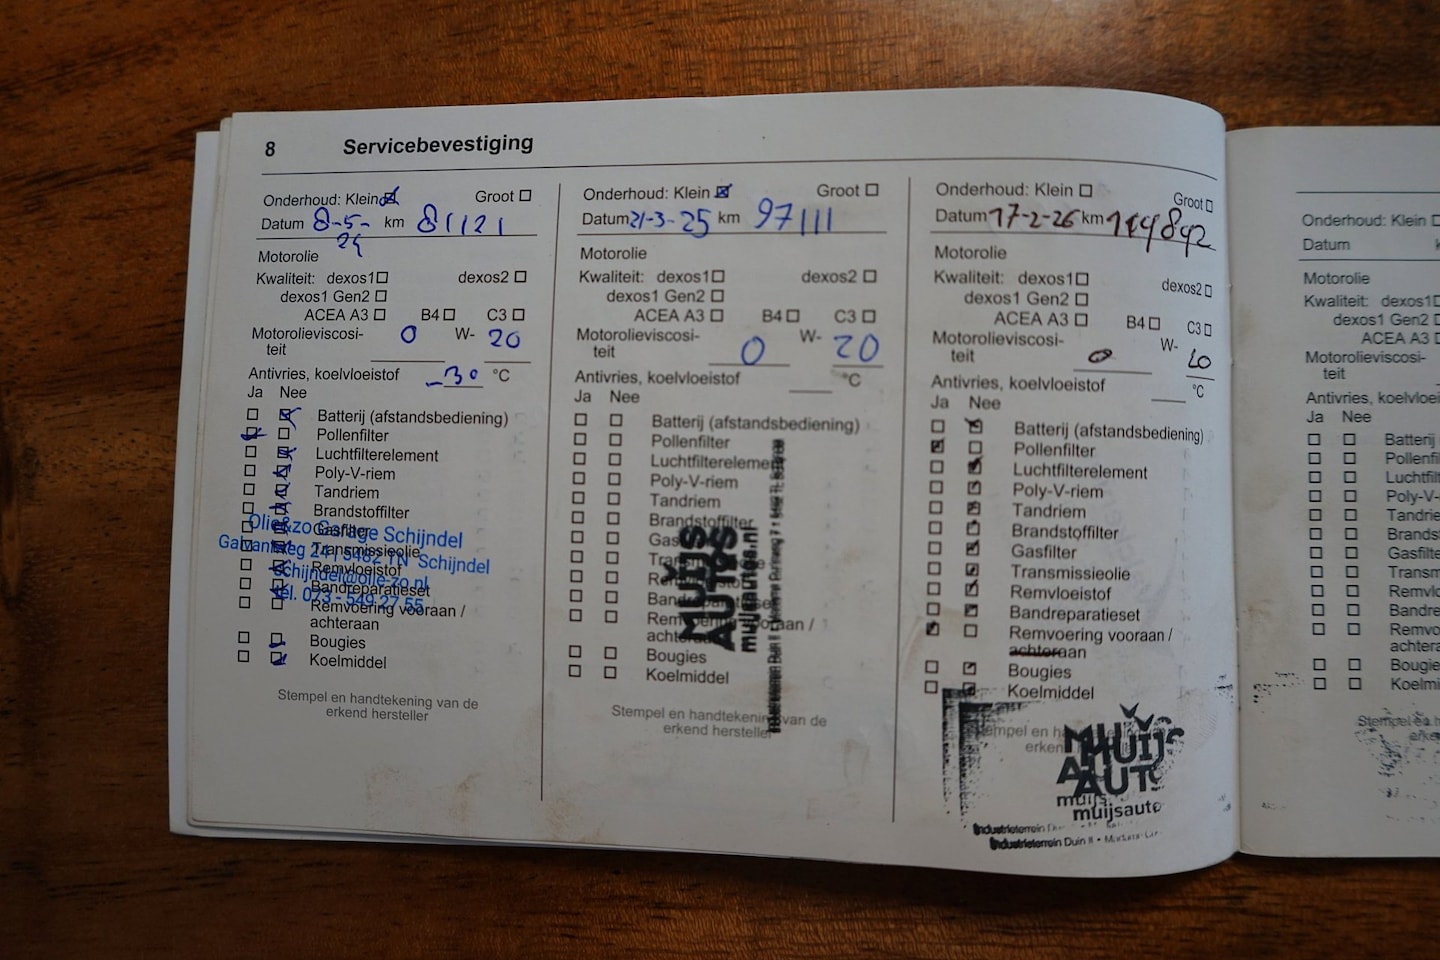 8 Servicebevestiging
Onderhoud: Klein Groot
Datum 8-5-24 km 81121
Motorolie
Kwaliteit: dexos1 dexos2
dexos1 Gen2
ACEA A3 B4 C3
Motorolieviscosi-
teit 0 W- 20
Antivries, koelvloeistof -30 °C
Ja Nee
Batterij (afstandsbediening)
Pollenfilter
Luchtfilterelement
Poly-V-riem
Tandriem
Brandstoffilter
Gasfilter
Transmissieolie
Remvloeistof
Bandreparatieset
Remvoering vooraan /
achteraan
Bougies
Koelmiddel
Olie&zo Garage Schijndel
24 | 5482 TN Schijndel
schijndel@olie-zo.nl
tel. 073 - 549 27 55
Stempel en handtekening van de
erkend hersteller
Onderhoud: Klein Groot
Datum 21-3-25 km 97111
Motorolie
Kwaliteit: dexos1 dexos2
dexos1 Gen2
ACEA A3 B4 C3
Motorolieviscosi-
teit 0 W- 20
Antivries, koelvloeistof °C
Ja Nee
Batterij (afstandsbediening)
Pollenfilter
Luchtfilterelement
Poly-V-riem
Tandriem
Brandstoffilter
Bougies
Koelmiddel
MUIJS
AUTOS
muijsautos.nl
Stempel en handtekening van de
erkend hersteller
Onderhoud: Klein Groot
Datum 17-2-26 km
Motorolie
Kwaliteit: dexos1 dexos2
dexos1 Gen2
ACEA A3 B4 C3
Motorolieviscosi- W-
teit 0 20
Antivries, koelvloeistof °C
Ja Nee
Batterij (afstandsbediening)
Pollenfilter
Luchtfilterelement
Poly-V-riem
Tandriem
Brandstoffilter
Gasfilter
Transmissieolie
Remvloeistof
Bandreparatieset
Remvoering vooraan /
achteraan
Bougies
Koelmiddel
MUIJS
AUT
muijs
muijsauto
Industrieterrein
Industrieterrein Duin II
Onderhoud: Klein
Datum
Motorolie
Kwaliteit: dexos1
dexos1 Gen2
ACEA A3
Motorolieviscosi-
teit
Antivries, koelvloei
Ja Nee
Batterij
Pollenfi
Luchtfil
Poly-V-
Tandrie
Brands
Gasfilte
Transm
Remvlo
Bandre
Remvo
achtera
Bougie
Koelmi